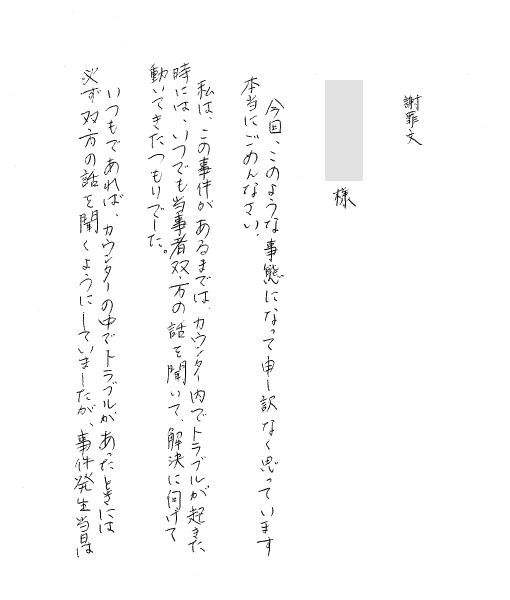 謝罪文
様
今回、このような事態になって申し訳なく思っています
本当にごめんなさい。
私は、この事件があるまでは、カウンター内でトラブルが起きた
時には、いつでも当事者双方の話を聞いて、解決に向けて
動いてきたつもりでした。
いつもであれば、カウンターの中でトラブルがあったときには
必ず双方の話を聞くようにしていましたが、事件発生当日は